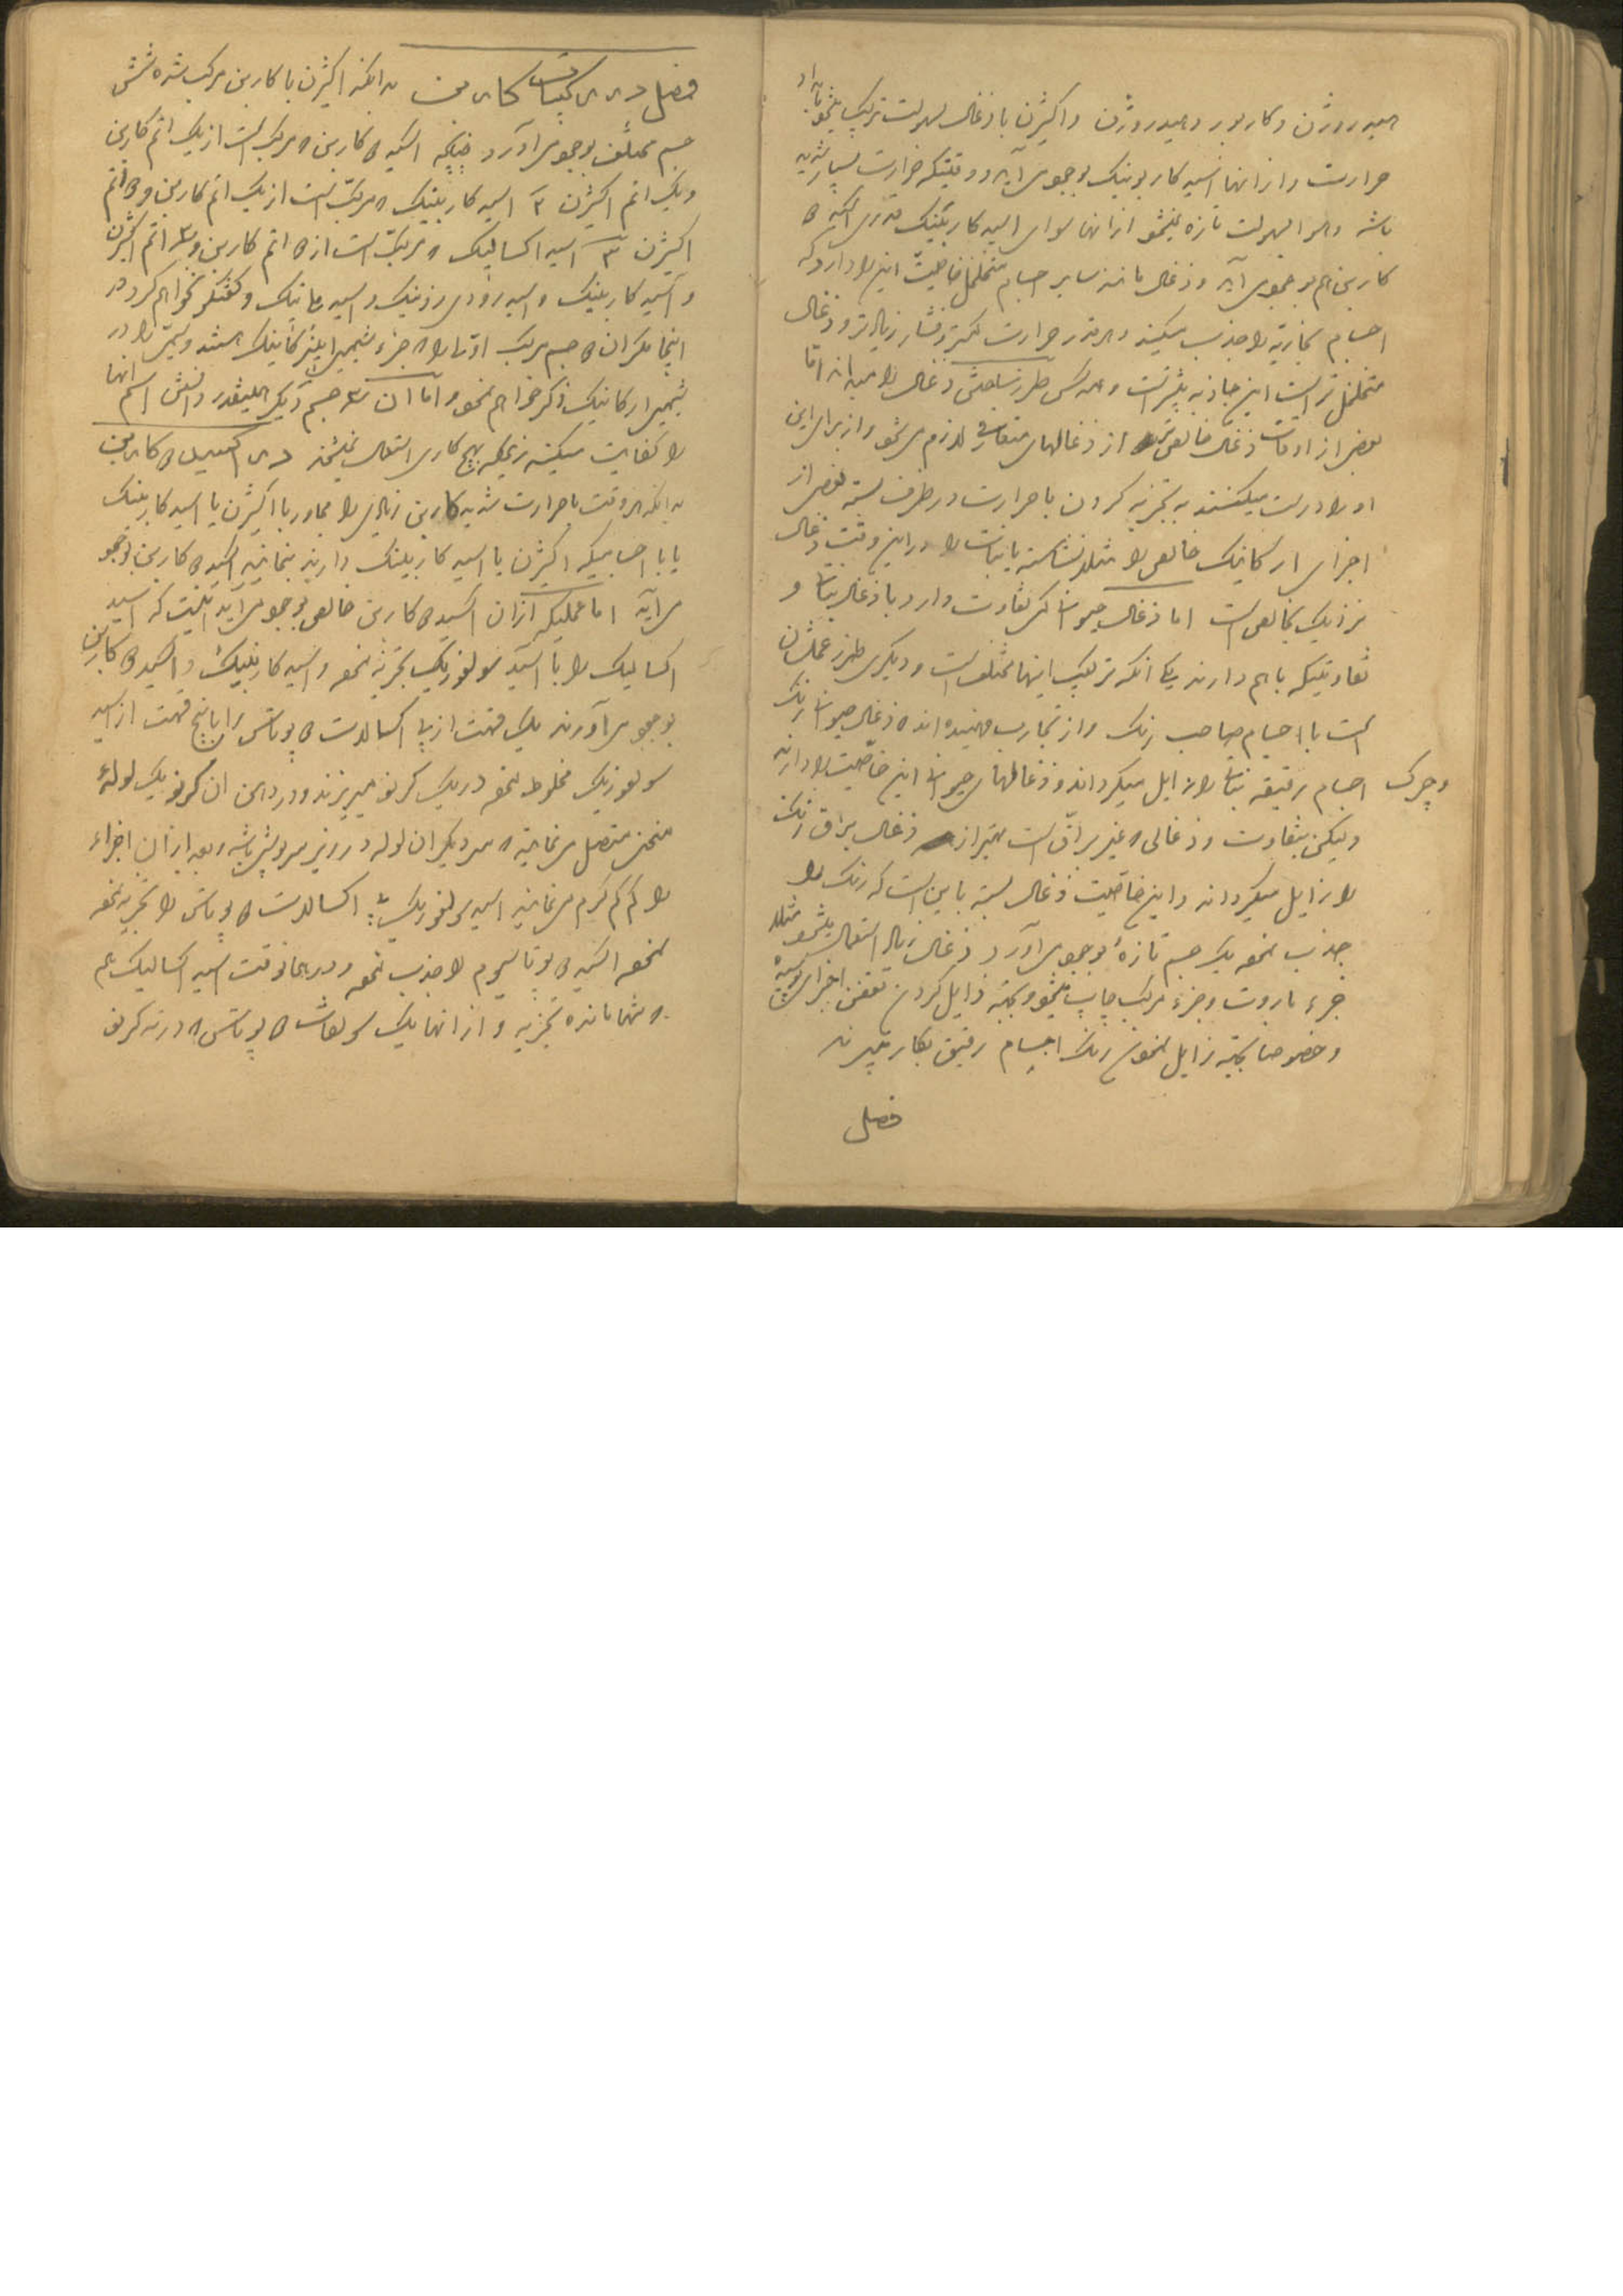 هیدروژن و کاربور دهیدروژن و اکیژن با ذغال بسهولت ترکیب میشود با
حرارت و از انها اسید کاربونیک بوجود می آید و وقتیکه حرارت بسیار شدید
باشد و هوا بسهولت تازه نمیشود از انها سوای اسید کاربنیک قدری اکسید
کاربن هم بوجود می آید و ذغال مانند سایر اجسام متخلخل خاصیت این را دارد که
اجسام بخاریه را جذب میکند و هر قدر حرارت کمتر و فشار زیادتر و ذغال
متخلخل تر است این جاذبه بیشتر است و همه کس طرز ساختن ذغال را میداند اما
بعضی از اوقات ذغال خالص تر از ذغالهای متعارفی لازم می شود و از برای این
او را درست میکنند به تجزیه کردن با حرارت در ظرف بسته بعضی از
اجزای ارکانیک خالص را مثل نشاسته یا نبات را در این وقت ذغال
نزدیک بخالص است اما ذغال حیوانی کلی تفاوت دارد با ذغال نباتی و
تفاوتیکه باهم دارند یکی انکه ترکیب اینها مختلف است و دیگری طرز عملشان
است با اجسام صاحب رنگ و از تجارب فهمیده اند که ذغال حیوانی رنگ
و چرک اجسام رقیقه نباتی را زایل میکرداند و ذغالهای حیوانی این خاصیت را دارند
ولیکن بتفاوت و ذغالی که غیر براق است بهتر از ذغال براق رنگ
را زایل میکرداند و این خاصیت ذغال بسته باین است که رنگ را
جذب نموده یک جسم تازهٔ بوجود می آورد ذغال زیاد استعمال میشود مثلا
جزء باروت و جزء مرکب چاپ میشود و بجهة زایل کردن تعفن اجزای پوسیده
و خصوصا بجهة زایل نمودن رنگ اجسام رقیق بکار میبرند
فصل
فصل در مرکبات کاربن بدانکه اکیژن با کاربن مرکب شده شش
جسم مختلف بوجود می آورد چنانچه اکسید کاربن که مرکب است از یک اتم کاربن
و یک اتم اکیژن ۲ اسید کاربنیک که مرکب است از یک اتم کاربن و دو اتم
اکیژن ۳ اسید اکسالیک که مرکب است از دو اتم کاربن و ۳ اتم اکیژن
و اسید کاربنیک و اسید رودی زونیک و اسید ملانیک و گفتگو نخواهم کرد در
اینجا مگر از آن دو جسم مرکب اولی را که جزء شیمی این ارکانیک هستند و سیمی را در
شیمی ارکانیک ذکر خواهم نمود و اما ان سه جسم دیگر همینقدر دانستن اسم انها
را کفایت میکند زیرا که بهیچ کاری استعمال نمیشوند در اکسید کاربن
بدانکه هر وقت با حرارت شدید کاربن زیادی را مجاور با اکیژن یا اسید کاربنیک
یا با اجسامیکه اکیژن یا اسید کاربنیک دارند بنمایند اکسید کاربن بوجود
می آید اما عملیکه از ان اکسید کاربن خالص بوجود می آید اینست که اسید
اکسالیک را با اسید سولفوریک تجزیه نموده و اسید کاربنیک و اکسید کاربن
بوجود می آورند یک قسمت از بی اکسالات پوتاس را با پنج قسمت از اسید
سولفوریک مخلوط نموده در یک کرنو میریزند و در دهن ان کرنو یک لولهٔ
منحنی متصل می نمایند که سر دیگر ان لوله در زیر سرپوش باشد و بعد از ان اجزاء
را کم کم گرم می نمایند اسید سولفوریک بی اکسالات پوتاس را تجزیه نموده
نموده اکسید پوتاسیوم را جذب نموده و در همانوقت اسید اکسالیک هم
که تنها مانده تجزیه و از انها یک سولفات پوتاس که در ته کرنو